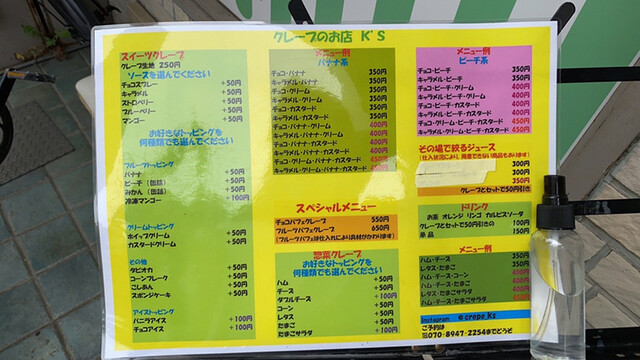 クレープのお店 K'S
スイーツクレープ
クレープ生地 250円
ソースを選んでください
チョコスプレー +50円
キャラメル +50円
ストロベリー +50円
ブルーベリー +50円
マンゴー +50円
お好きなトッピングを
何種類でも選んでください
フルーツトッピング
バナナ +50円
ピーチ(缶詰) +50円
みかん(缶詰) +50円
冷凍マンゴー +100円
クリームトッピング
ホイップクリーム +50円
カスタードクリーム +50円
その他
タピオカ +50円
コーンフレーク +50円
こしあん +50円
スポンジケーキ +50円
アイストッピング
バニラアイス +100円
チョコアイス +100円
メニュー例
バナナ系
チョコ・バナナ 350円
キャラメル・バナナ 350円
チョコ・クリーム 350円
キャラメル・クリーム 350円
チョコ・カスタード 350円
キャラメル・カスタード 350円
チョコ・バナナ・クリーム 400円
キャラメル・バナナ・クリーム 400円
チョコ・バナナ・カスタード 400円
キャラメル・バナナ・カスタード 400円
チョコ・クリーム・バナナ・カスタード 450円
キャラメル・クリーム・バナナ・カスタード 450円
スペシャルメニュー
チョコパフェクレープ 550円
フルーツパフェクレープ 650円
(フルーツパフェは仕入れにより具材がかわります)
惣菜クレープ
お好きなトッピングを
何種類でも選んでください
ハム +50円
チーズ +50円
ダブルチーズ +100円
コーン +50円
レタス +50円
たまご +50円
たまごサラダ +100円
メニュー例
ピーチ系
チョコ・ピーチ 350円
キャラメル・ピーチ 350円
チョコ・ピーチ・クリーム 400円
キャラメル・ピーチ・クリーム 400円
チョコ・ピーチ・カスタード 400円
キャラメル・ピーチ・カスタード 400円
チョコ・クリーム・ピーチ・カスタード 450円
キャラメル・クリーム・ピーチ・カスタード 450円
その場で絞るジュース
(仕入状況により、用意できない商品もあります)
300円
300円
350円
クレープとセットで50円引き
ドリンク
お茶 オレンジ リンゴ カルピスソーダ
クレープとセットで50円引きの 100円
単品 150円
メニュー例
ハム・チーズ 350円
レタス・たまご 350円
ハム・チーズ・コーン 400円
ハム・チーズ・たまご 400円
レタス・たまごサラダ 400円
ハム・チーズ・たまごサラダ
Instagram @crepe_Ks
ご予約は
☎070-8947-2254までどうぞ